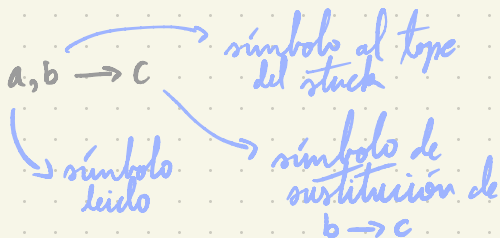 a,b → c
símbolo al tope
del stuck
símbolo
leido
símbolo de
sustitución de
b → c